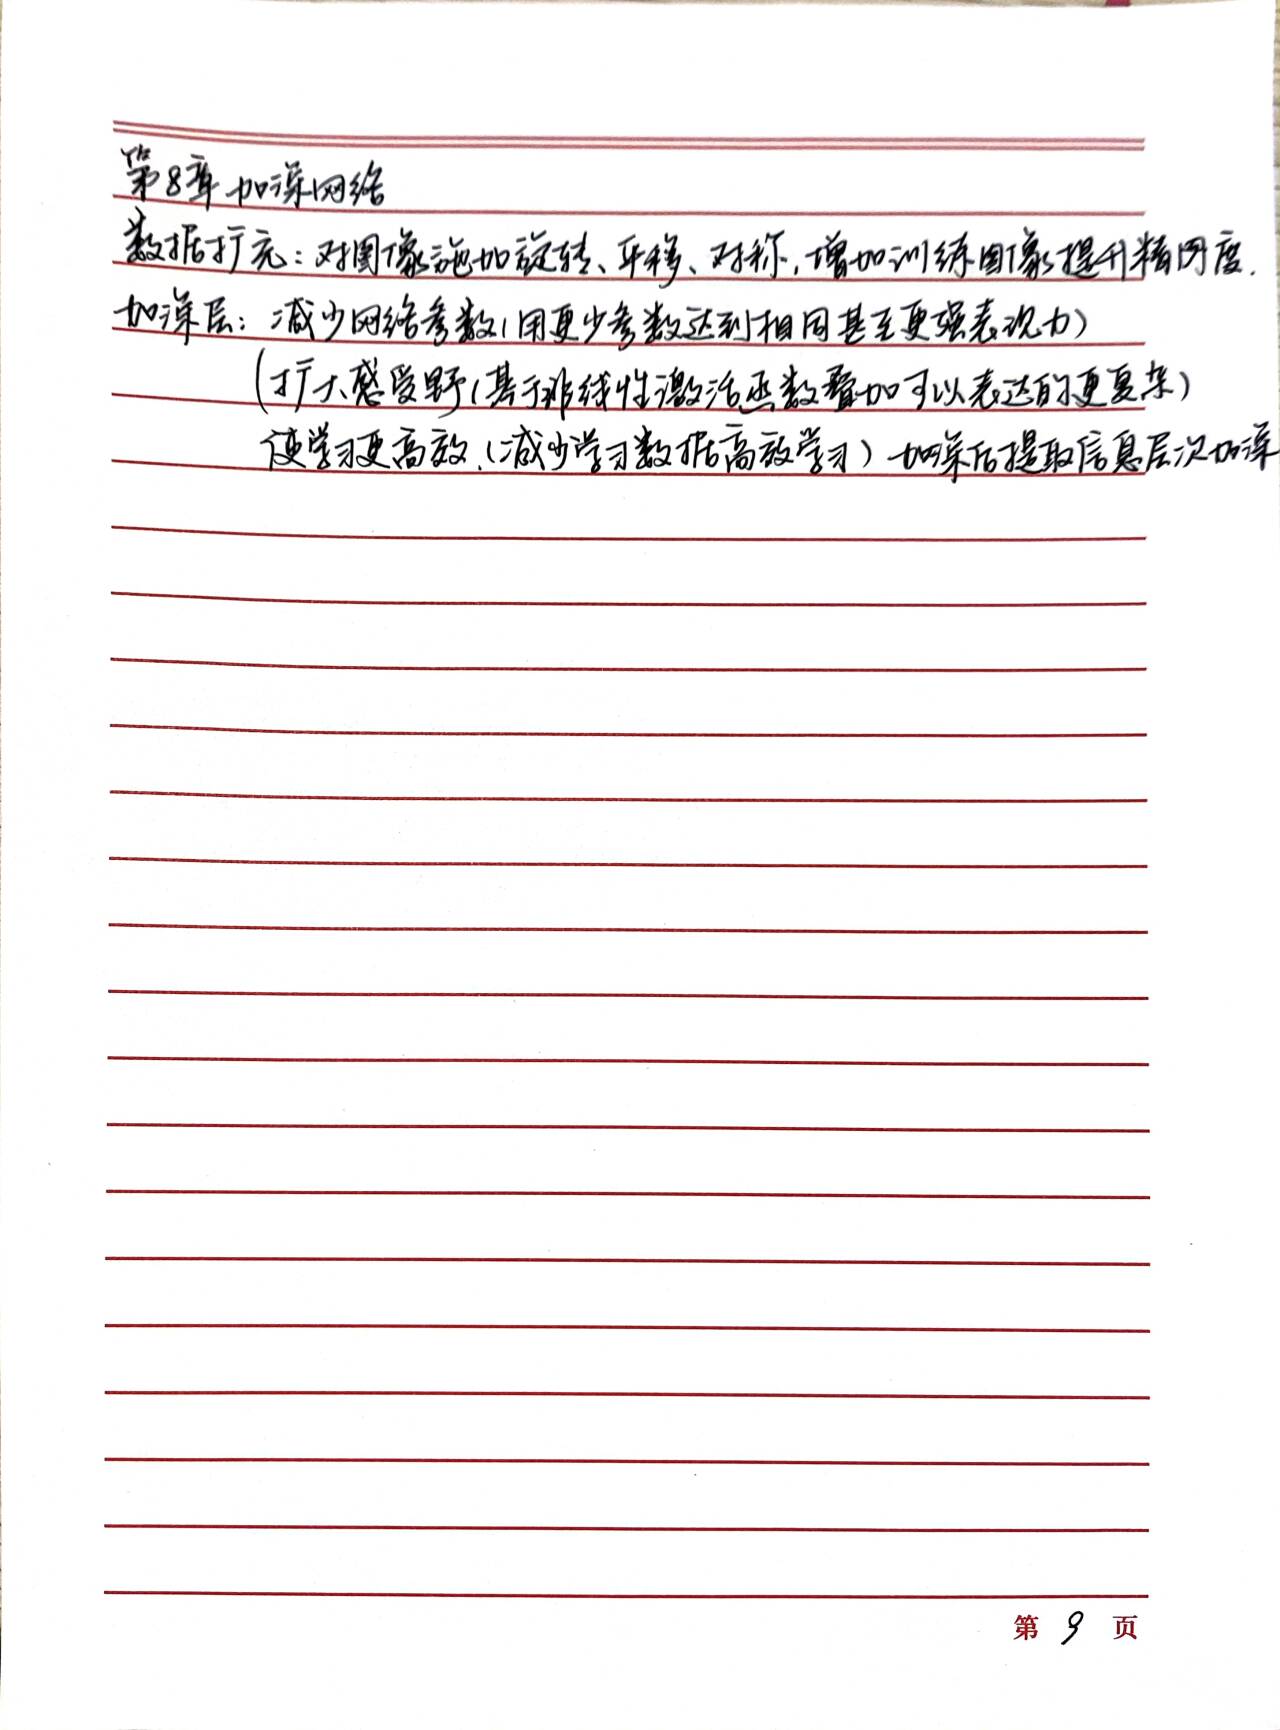 第8章 加深网络
数据扩充：对图像施加旋转、平移、对称，增加训练图像提升精网度.
加深层：减少网络参数(用更少参数达到相同甚至更强表现力)
(扩大感受野(基于非线性激活函数叠加可以表达的更复杂)
使学习更高效.(减少学习数据高效学习) 加深后提取信息层次加深
第 9 页